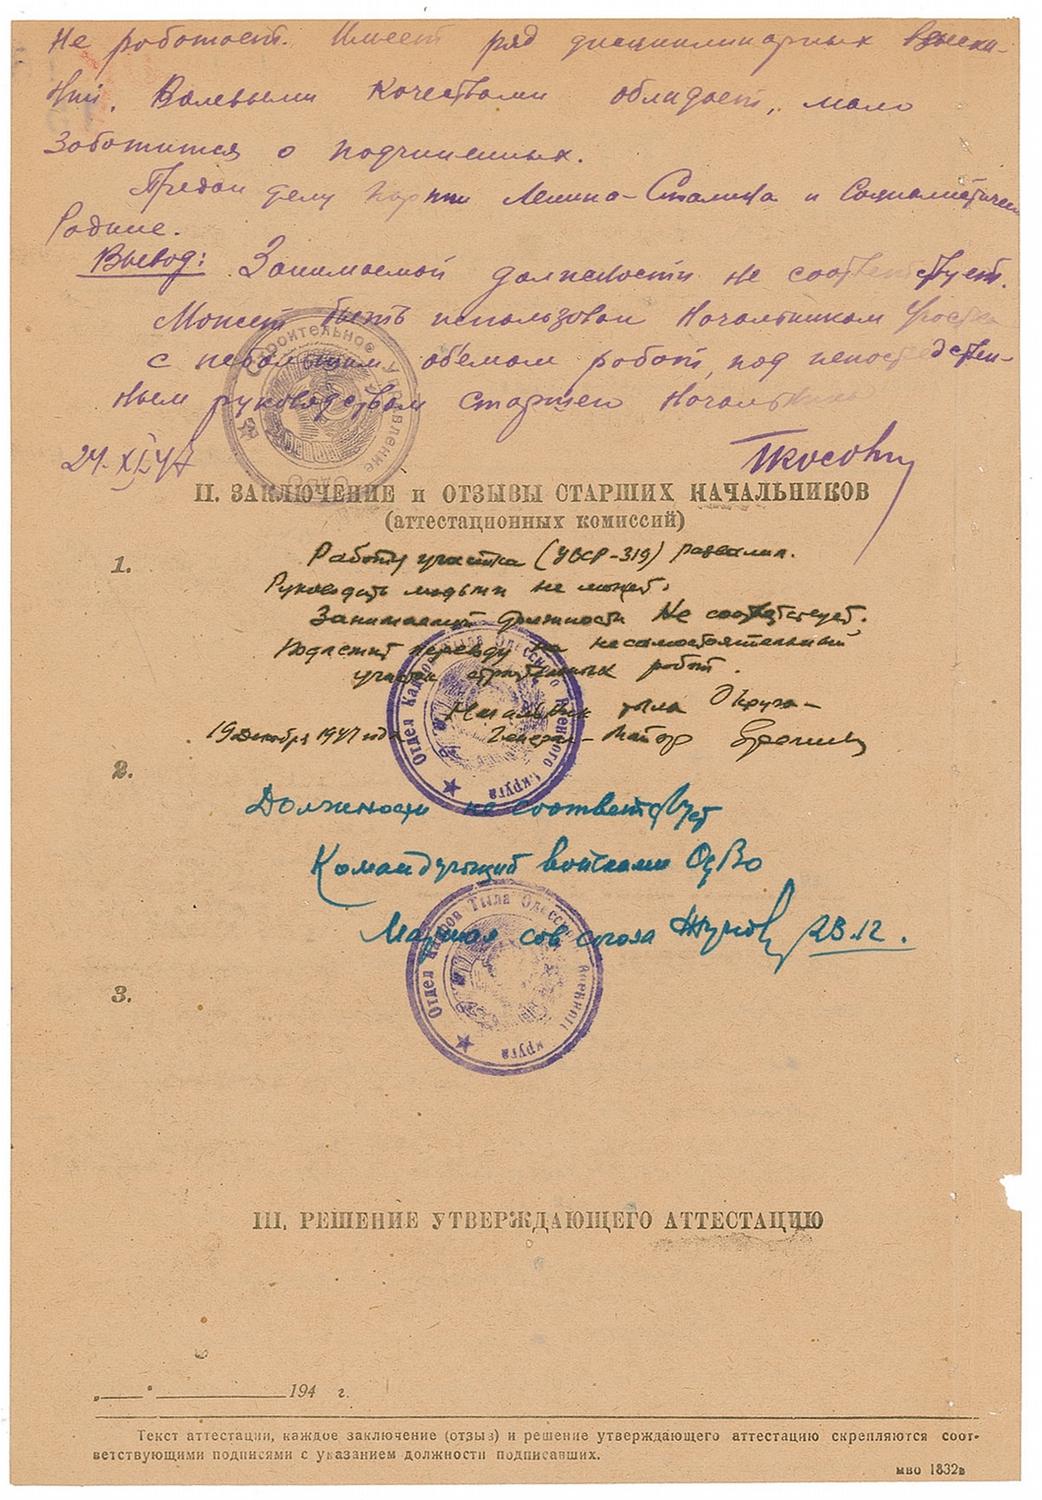 Не работает. Имеет ряд дисциплинарных взыска-
ний. Валевыми качествами обладает, мало
заботится о подчиненных.
Предан делу партии Ленина-Сталина и Социалистической
Родине.
Вывод: Занимаемой должности не соответствует.
Может быть использован Начальником Участка
с небольшим объемом работ, под непосредствен-
ным руководством старшего Начальника
24.XII.47
СТРОИТЕЛЬНОЕ УПРАВЛЕНИЕ
II. ЗАКЛЮЧЕНИЕ и ОТЗЫВЫ СТАРШИХ НАЧАЛЬНИКОВ
(аттестационных комиссий)
1. Работу участка (УВСР-319) развалил.
Руководить людьми не может.
Занимаемой должности Не соответствует.
Подлежит переводу на несамостоятельный
участок строительных работ.
Начальник тыла Округа-
19 декабря 1947 года Генерал-Майор
Отдел Кадров Тыла Одесского Военного Округа
2.
Должности не соответствует
Командующий войсками ОдВО
Маршал Сов союза Жуков 23.12.
Отдел Кадров Тыла Одесского Военного Округа
3.
III. РЕШЕНИЕ УТВЕРЖДАЮЩЕГО АТТЕСТАЦИЮ
„___“ ____________194 г.
Текст аттестации, каждое заключение (отзыв) и решение утверждающего аттестацию скрепляются соот-
ветствующими подписями с указанием должности подписавших.
МВО 1832в